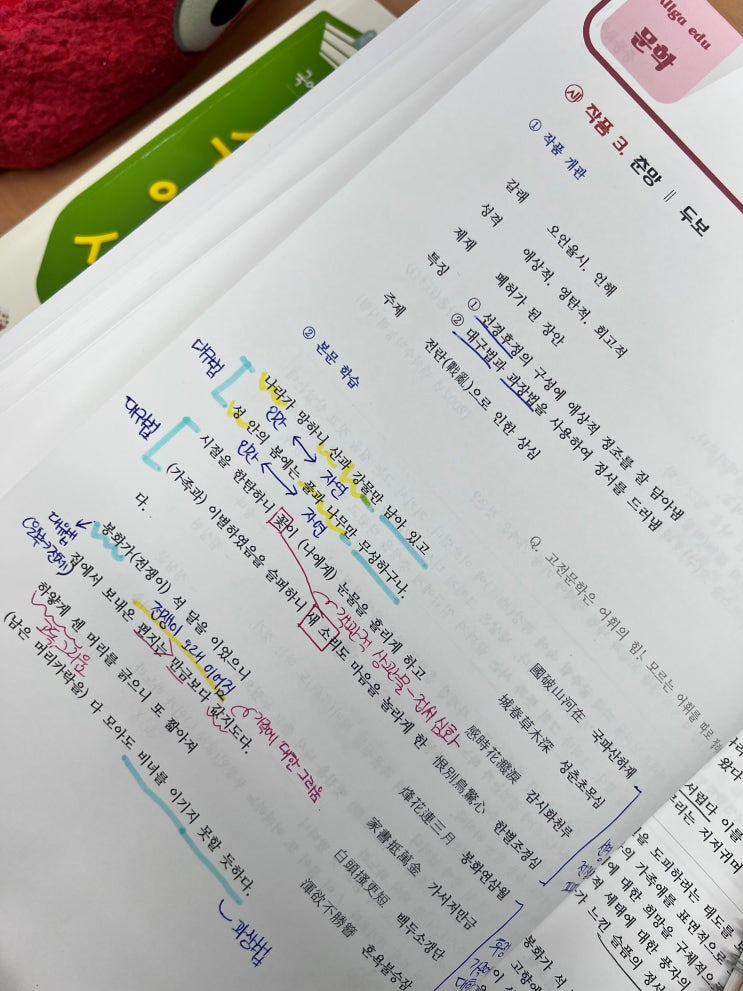 ulga edu
문학
새 작품 3. 춘망 || 두보
① 작품 개관
갈래 오언율시, 언해
성격 애상적, 영탄적, 회고적
제재 폐허가 된 장안
특징 ① 선경후정의 구성에 애상적 정조를 잘 담아냄
② 대구법과 과장법을 사용하여 정서를 드러냄
주제 전란(戰亂)으로 인한 상심
② 본문 학습
Q. 고전문학은 어휘의 힘! 모르는 어휘를 따로
대구법
나라가 망하니 산과 강물만 남아 있고
인간 ↔ 자연
성 안의 봄에는 풀과 나무만 무성하구나.
인간 ↔ 자연
대구법
시절을 한탄하니 꽃이 (나에게) 눈물을 흘리게 하고
(가족과) 이별하였음을 슬퍼하니 새 소리도 마음을 놀라게 한
다.
객관적 상관물-정서 심화
대유법
(일부→전체)
봉화가(전쟁이) 석 달을 이었으니
전쟁이 오래 이어짐
집에서 보내온 편지는 만금보다 값지도다.
가족에 대한 그리움
하얗게 센 머리를 긁으니 또 짧아져
(남은 머리카락을) 다 모아도 비녀를 이기지 못할 듯하다.
과장법
國破山河在 국파산하재
城春草木深 성춘초목심
感時花濺淚 감시화천루
恨別鳥驚心 한별조경심
烽花連三月 봉화연삼월
家書抵萬金 가서저만금
白頭搔更短 백두소갱단
渾欲不勝簪 혼욕불승잠
왔다
서럽다 이를
지저귀며
을 도피하려는 태도를
의 가족애를 표면적으로
에 대한 희망을 구체적으로
적 세태에 대한 풍자의
가 느낀 슬픔의 정서
봉화가 석
고향에